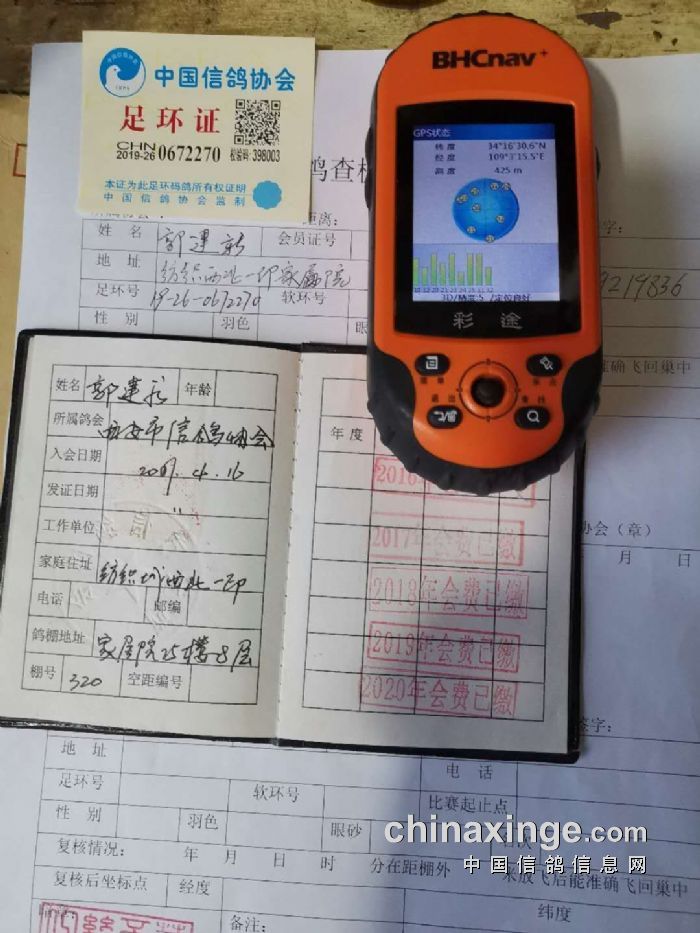 中国信鸽协会
足环证
CHN
2019-26 0672270 检验码:398003
本证为此足环码鸽所有权证明
中国信鸽协会监制
BHCnav+
GPS状态
纬度 34°16'30.6"N
经度 109°3'15.5"E
高度 425 m
3D/精度:5 /定位良好
彩途
菜单
退出
查找
鸽查
距离:
姓名 郭建新 会员证号
地址 纺织西北一印家属院
足环号 19-26-0672270 软环号
性别 羽色
字:
9219836
准确飞回巢中
姓名 郭建新 年龄
所属鸽会 西安市信鸽协会
入会日期 2009.4.16
发证日期 "
工作单位
家庭住址 纺织城西北一印
电话 邮编
鸽棚地址 家属院25楼8层
棚号 320 空距编号
年度
2016年
2017年会费已缴
2018年会费已缴
2019年会费已缴
2020年会费已缴
协会(章)
月 日
签字:
地址 电话
足环号 软环号 比赛起止点
性别 羽色 眼砂
复核情况: 年 月 日 时 分在距棚外 来放飞后能准确飞回巢中
复核后坐标点 经度 纬度
备注:
chinaxinge.com
中国信鸽信息网